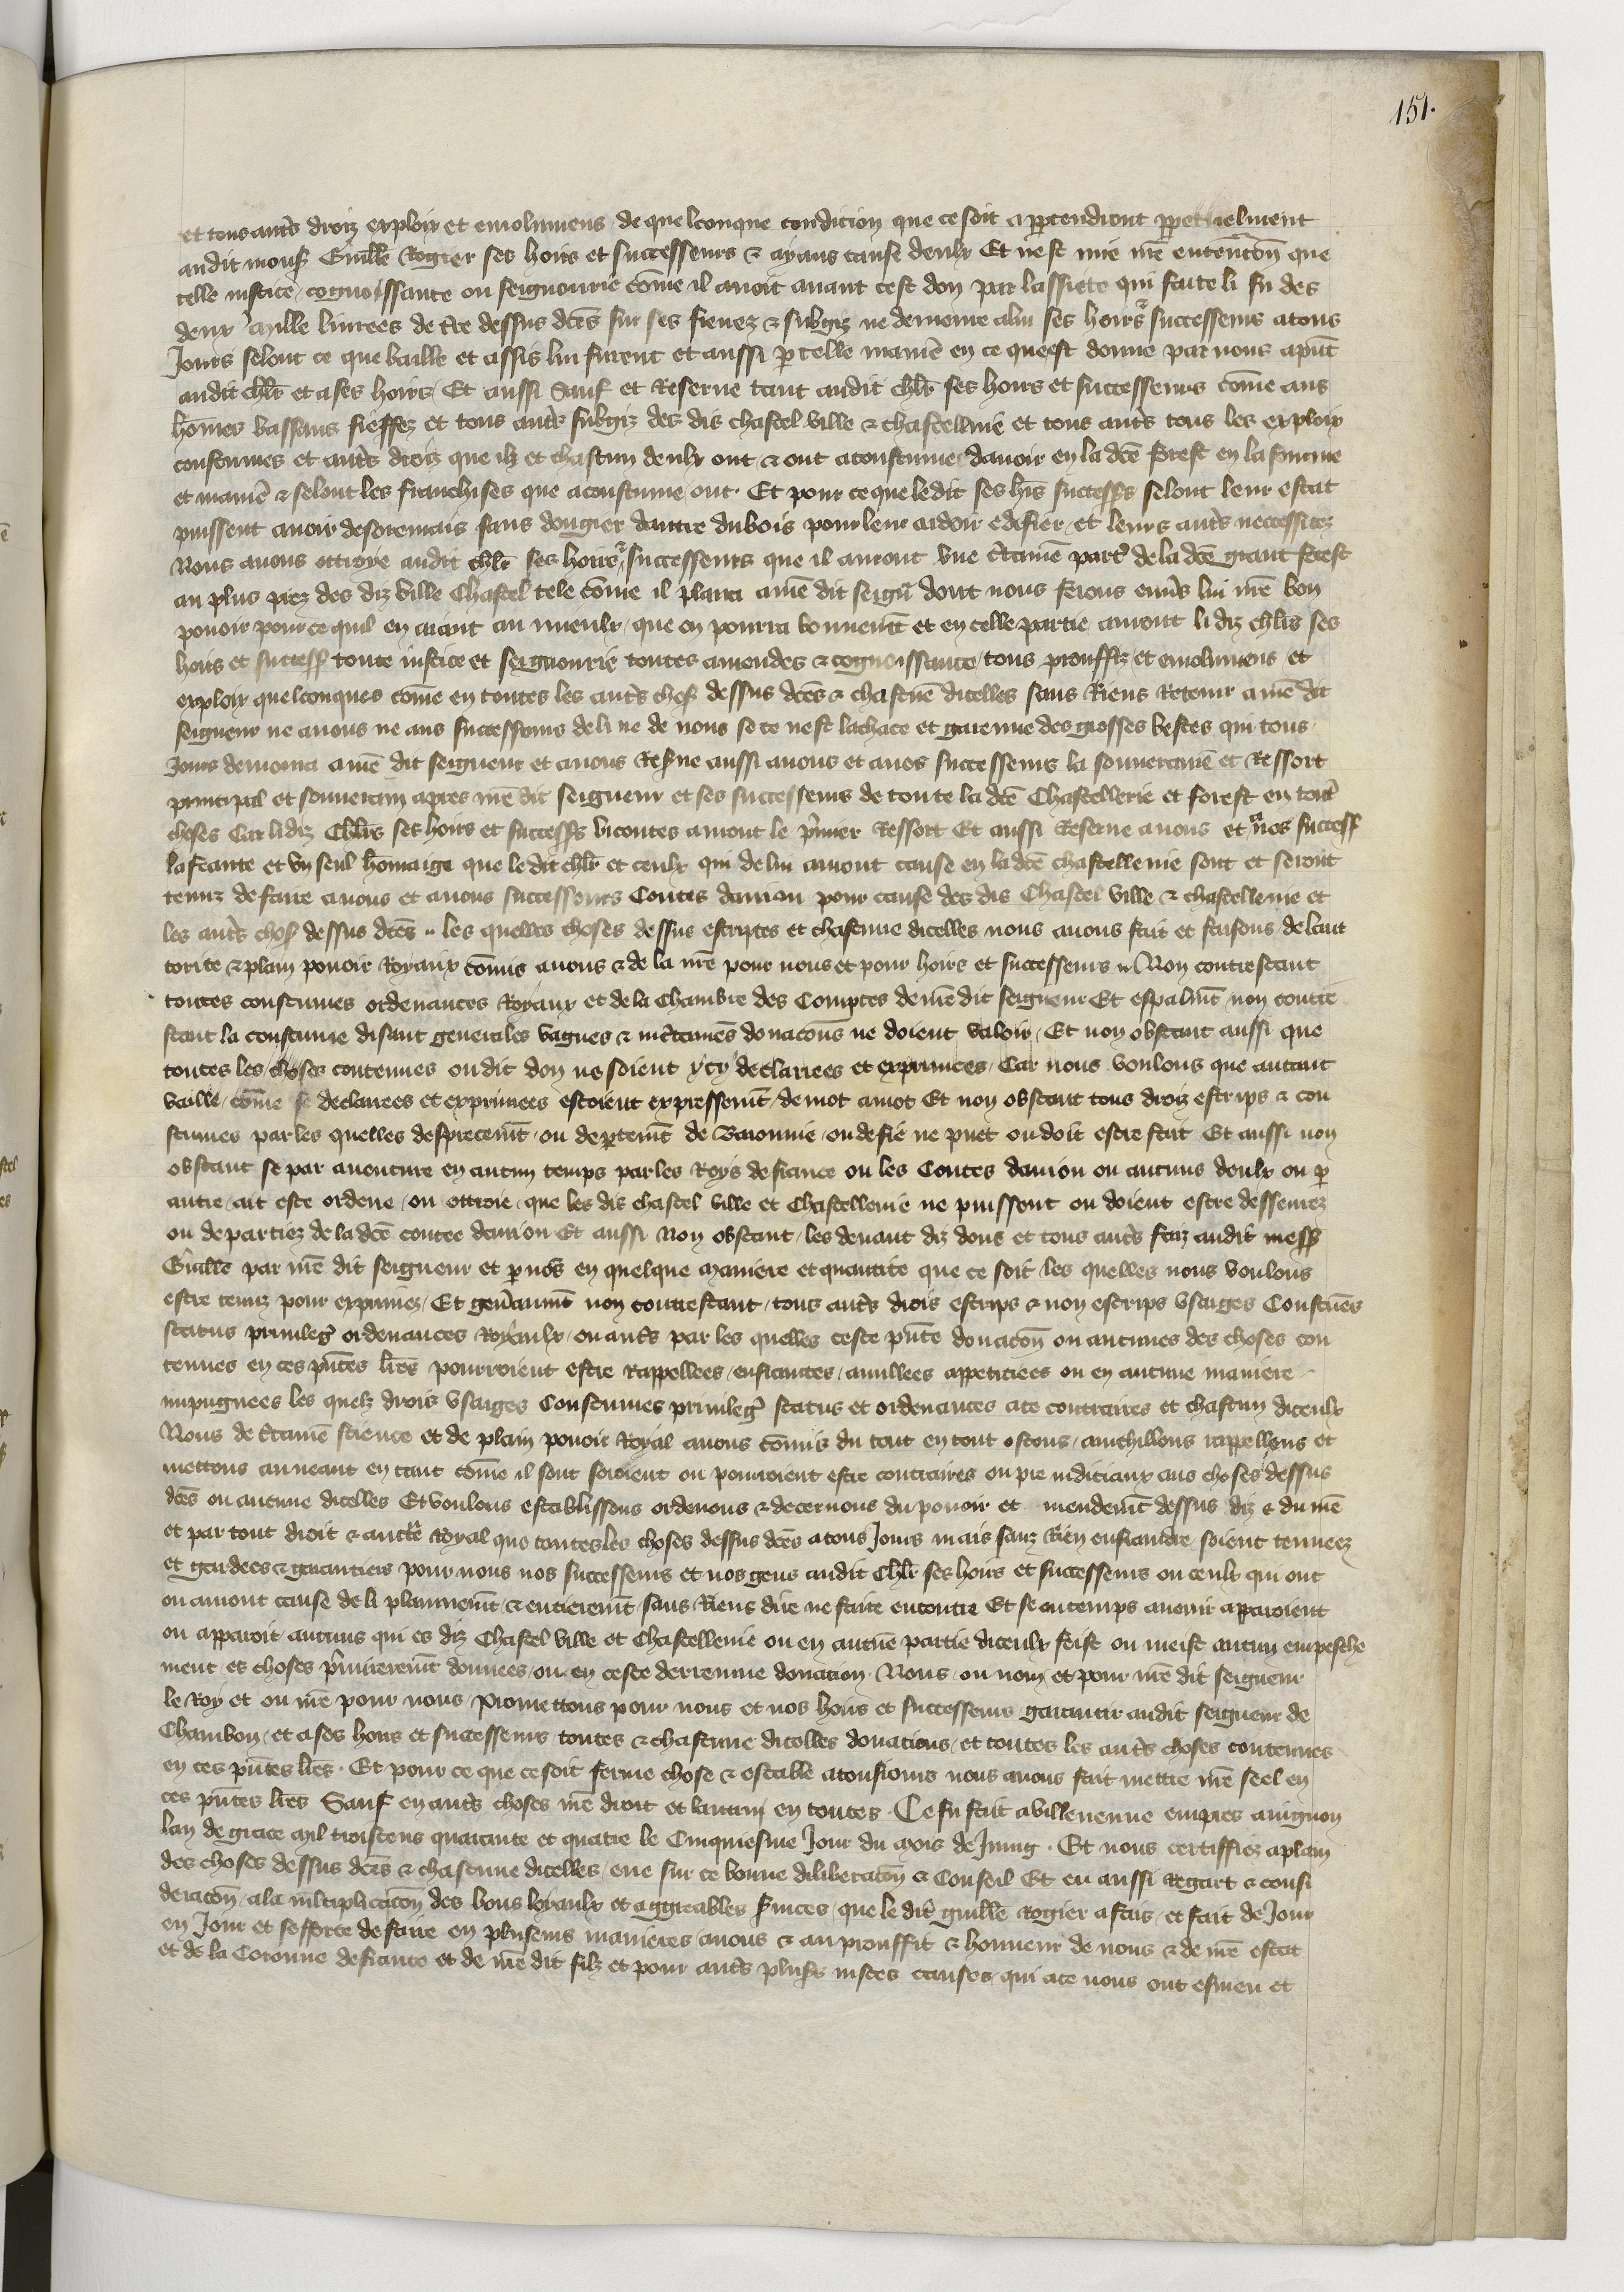 151.
et tous autres droiz exploiz et emolumens de quelconque condicion que ce soit appartendront ppetuelment
audit mons Guille Rogier ses hoirs et successeurs & ayans cause deulx Et nest mie nre entencon que
telle justice cognoissance ou seignourie come il avoit avant cest don par lassiete qui faite li fu des
deux mille livrees de tre dessus dces sur ses fievez & subgiz ne demeure alui ses hoirs & successeurs atous
Jours selont ce que baille et assis lui furent et aussi p telle manie en ce que est donne par nous apnt
audit chlr et ases hoirs Et aussi Sauf et Reserve tant audit chlr ses hoirs et successeurs come aus
homes vassaus fieffez et tous autres subgiz des dis chastel ville & chastellnie et tous autres tous les exploiz
coustumes et autres droiz que ilz et chascun deulx ont & ont acoustume davoir en la dce forest en la fourme
et manie & selont les franchises que acoustume ont. Et pour ce que ledit ses hrs successrs selont leur estat
puissent avoir desoremais sans dongier dautre du bois pour leur ardoir edefier et leurs autres neccessitez
Nous avons ottroye audit chlr ses hoirs & successeurs que il auront une ctaine partie de la dce grant forest
au plus prez des diz ville Chastel tele come il plaira a nre dit seigr dont nous ferons envs lui nre bon
povoir pour ce quil en aiant au mieulx que en pourra bonnemt et en celle partie auront li diz chlrs ses
hoirs et success toute justice et seignourie toutes amendes & cognoissance tous prouffiz et emolumens et
exploiz quelconques come en toutes les autres choss dessus dces & chascune dicelles sans Riens Retenir a nre dit
seigneur ne a nous ne aus successeurs de li ne de nous se ce nest la chace et garenne des grosses bestes qui tous
Jours demoura a nre dit seigneur et a nous Resve aussi a nous et a nos successeurs la souverainé et Ressort
principal et souverain apres nre dit seigneur et ses successeurs de toute la dce Chastellerie et forest en toutes
choses Car li diz Chlrs ses hoirs et success vicontes auront le pmier Ressort Et aussi Reserve a nous et a nos success
la feaute et un seul homaige que le dit chlr et ceulx qui de lui auront cause en la dce chastellenie sont et seront
tenuz de faire a nous et a nous successeurs Contes danjou pour cause des dis Chastel ville & chastellenie et
les autres choss dessus dces .. les quelles choses dessus escriptes et chascune dicelles nous avons fait et faisons de laut
torite & plain povoir Royaux comis a nous & de la nre pour nous et pour hoirs et successeurs .. Non contrestant
toutes coustumes ordenances Royaux et de la Chambre des Comptes de nre dit seigneur Et espalmt non contre
stant la coustume disant generales vagues & inctaines donacons ne doient valoir Et non obstant aussi que
toutes les choses contenues ou dit don ne soient ycy declariees et exprimees Car nous voulons que autant
vaille come se declarees et exprimees estoient expressemt de mot amot Et non obstant tous droiz escrips & cou
stumes par les quelles despiecemt ou deptemt de Baronnie ou de fie ne puet ou doit estre fait Et aussi non
obstant se par aventure en aucun temps par les Roys de france ou les Contes danjou ou aucuns deulx ou p
autre ait este ordene ou ottroie que les dis chastel ville et Chastellenie ne puissent ou doient estre dessevrez
ou departiez de la dce contee danjou Et aussi Non obstant les devant diz dons et tous autres faiz audit mess
Guille par nre dit seigneur et p nos en quelque maniere et quantite que ce soit les quelles nous voulons
estre tenuz pour exprimez Et genaumt non contrestant tous autres drois escrips & non escrips usaiges Coustues
status privileges ordenances Royaulx ou autres par les quelles ceste pnte donacon ou aucunes des choses con
tenues en ces pntes lres pourroient estre Rappellees enfraintes anullees appeticiees ou en aucune maniere
impugnees les quelz drois usaiges Coustumes privileges status et ordenances ace contraires et chascun diceulx
Nous de ctaine science et de plain povoir Royal a nous comis du tout en tout ostons anichillons rappellons et
mettons au neant en tant come il sont seroient ou pourroient estre contraires ou pre judiciaux aus choses dessus
dces ou aucune dicelles Et voulons establissons ordenons & decernons du povoir et mendemt dessus diz & du nre
et par tout droit & aucte Royal que toutes les choses dessus dces atous Jours mais sanz Rien enfraindre soient tenuez
et gardees & garanties pour nous nos successeurs et nos gens audit Chlr ses hoirs et successeurs ou ceulx qui ont
ou auront cause de li plainnemt & entieremt sans Riens dire ne faire encontre Et se ou temps avenir apparoient
ou apparoit aucuns qui es diz Chastel ville et Chastellenie ou en aucune partie diceulx feist ou meist aucun empesche
ment es choses pmieremt donnees ou en ceste derrenne donation. Nous ou nom et pour nre dit seigneur
le Roy et ou nre pour nous Promettons pour nous et nos hoirs et successeurs garantir audit seigneur de
Chambon et ases hoirs et successeurs toutes & chascune dicelles donations et toutes les autres choses contenues
en ces pntes lres. Et pour ce que ce soit ferme chose & estable atousjours nous avons fait mettre nre seel en
ces pntes lres Sauf en autres choses nre droit et lautruy en toutes. Ce fu fait a villenenve empres avignon
lan de grace mil troiscens quarante et quatre le Cinquiesme Jour du mois de Juing. Et nous certiffiez aplain
des choses dessus dces & chascune dicelles eue sur ce bonne deliberacon & Conseil Et eu aussi Regart & consi
deracon ala multiplicacon des bons loyaulx et aggreables Services que le dit guille Rogier a fais et fait de Jour
en Jour et sefforce de faire en pluseurs manieres a nous & au prouffit & honneur de nous & de nre estat
et de la Coronne de france et de nre dit filz et pour autres plusrs justes causes qui ace nous ont esmeu et